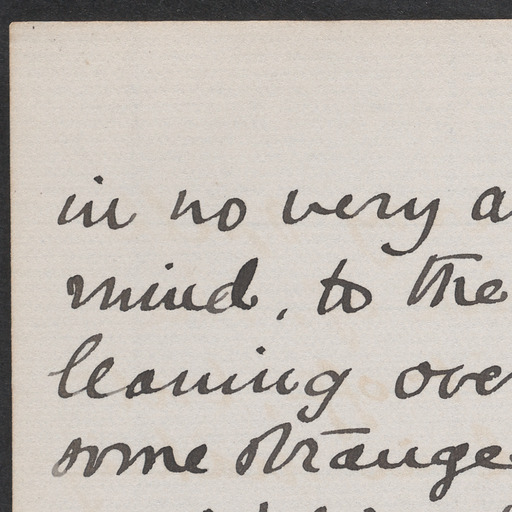 in no very a
mind, to the
leaning over
some strange